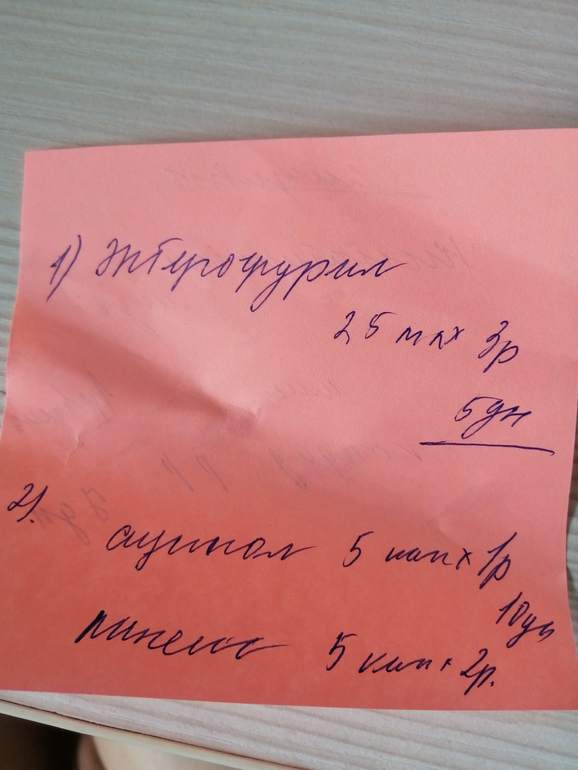 1) Энтерофурил
2,5 мл х 3р
5дн
2). аципол 5 кап х 1р
10дн
линекс 5 кап х 2р.